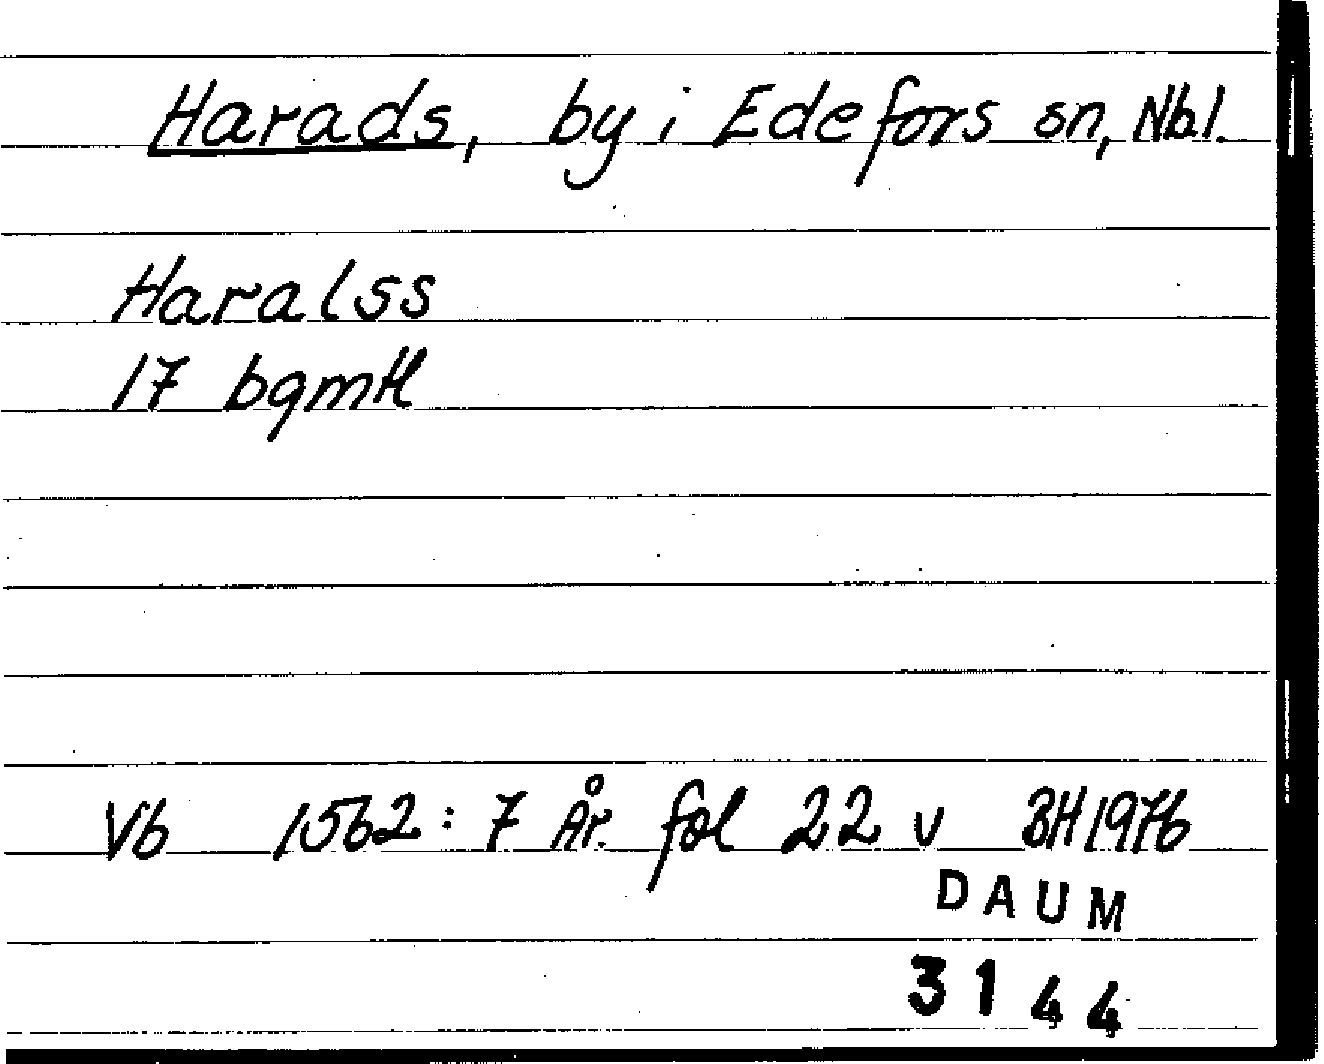 Harads, by i Edefors sn, Nbl.
Haralss
17 bgmtl
Vb 1562: 7 År. fol 22 v BH 1976
DAUM
3144